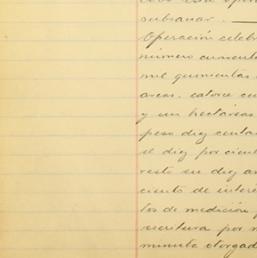 esta
subsanar.
Operación celeb
número cuarenta
mil quinientas
areas, catorce cen
y un hectáreas
peso diez centa
el diez por cient
resto en diez an
ciento de interé
tos de medición y
escritura por
minuta otorgad